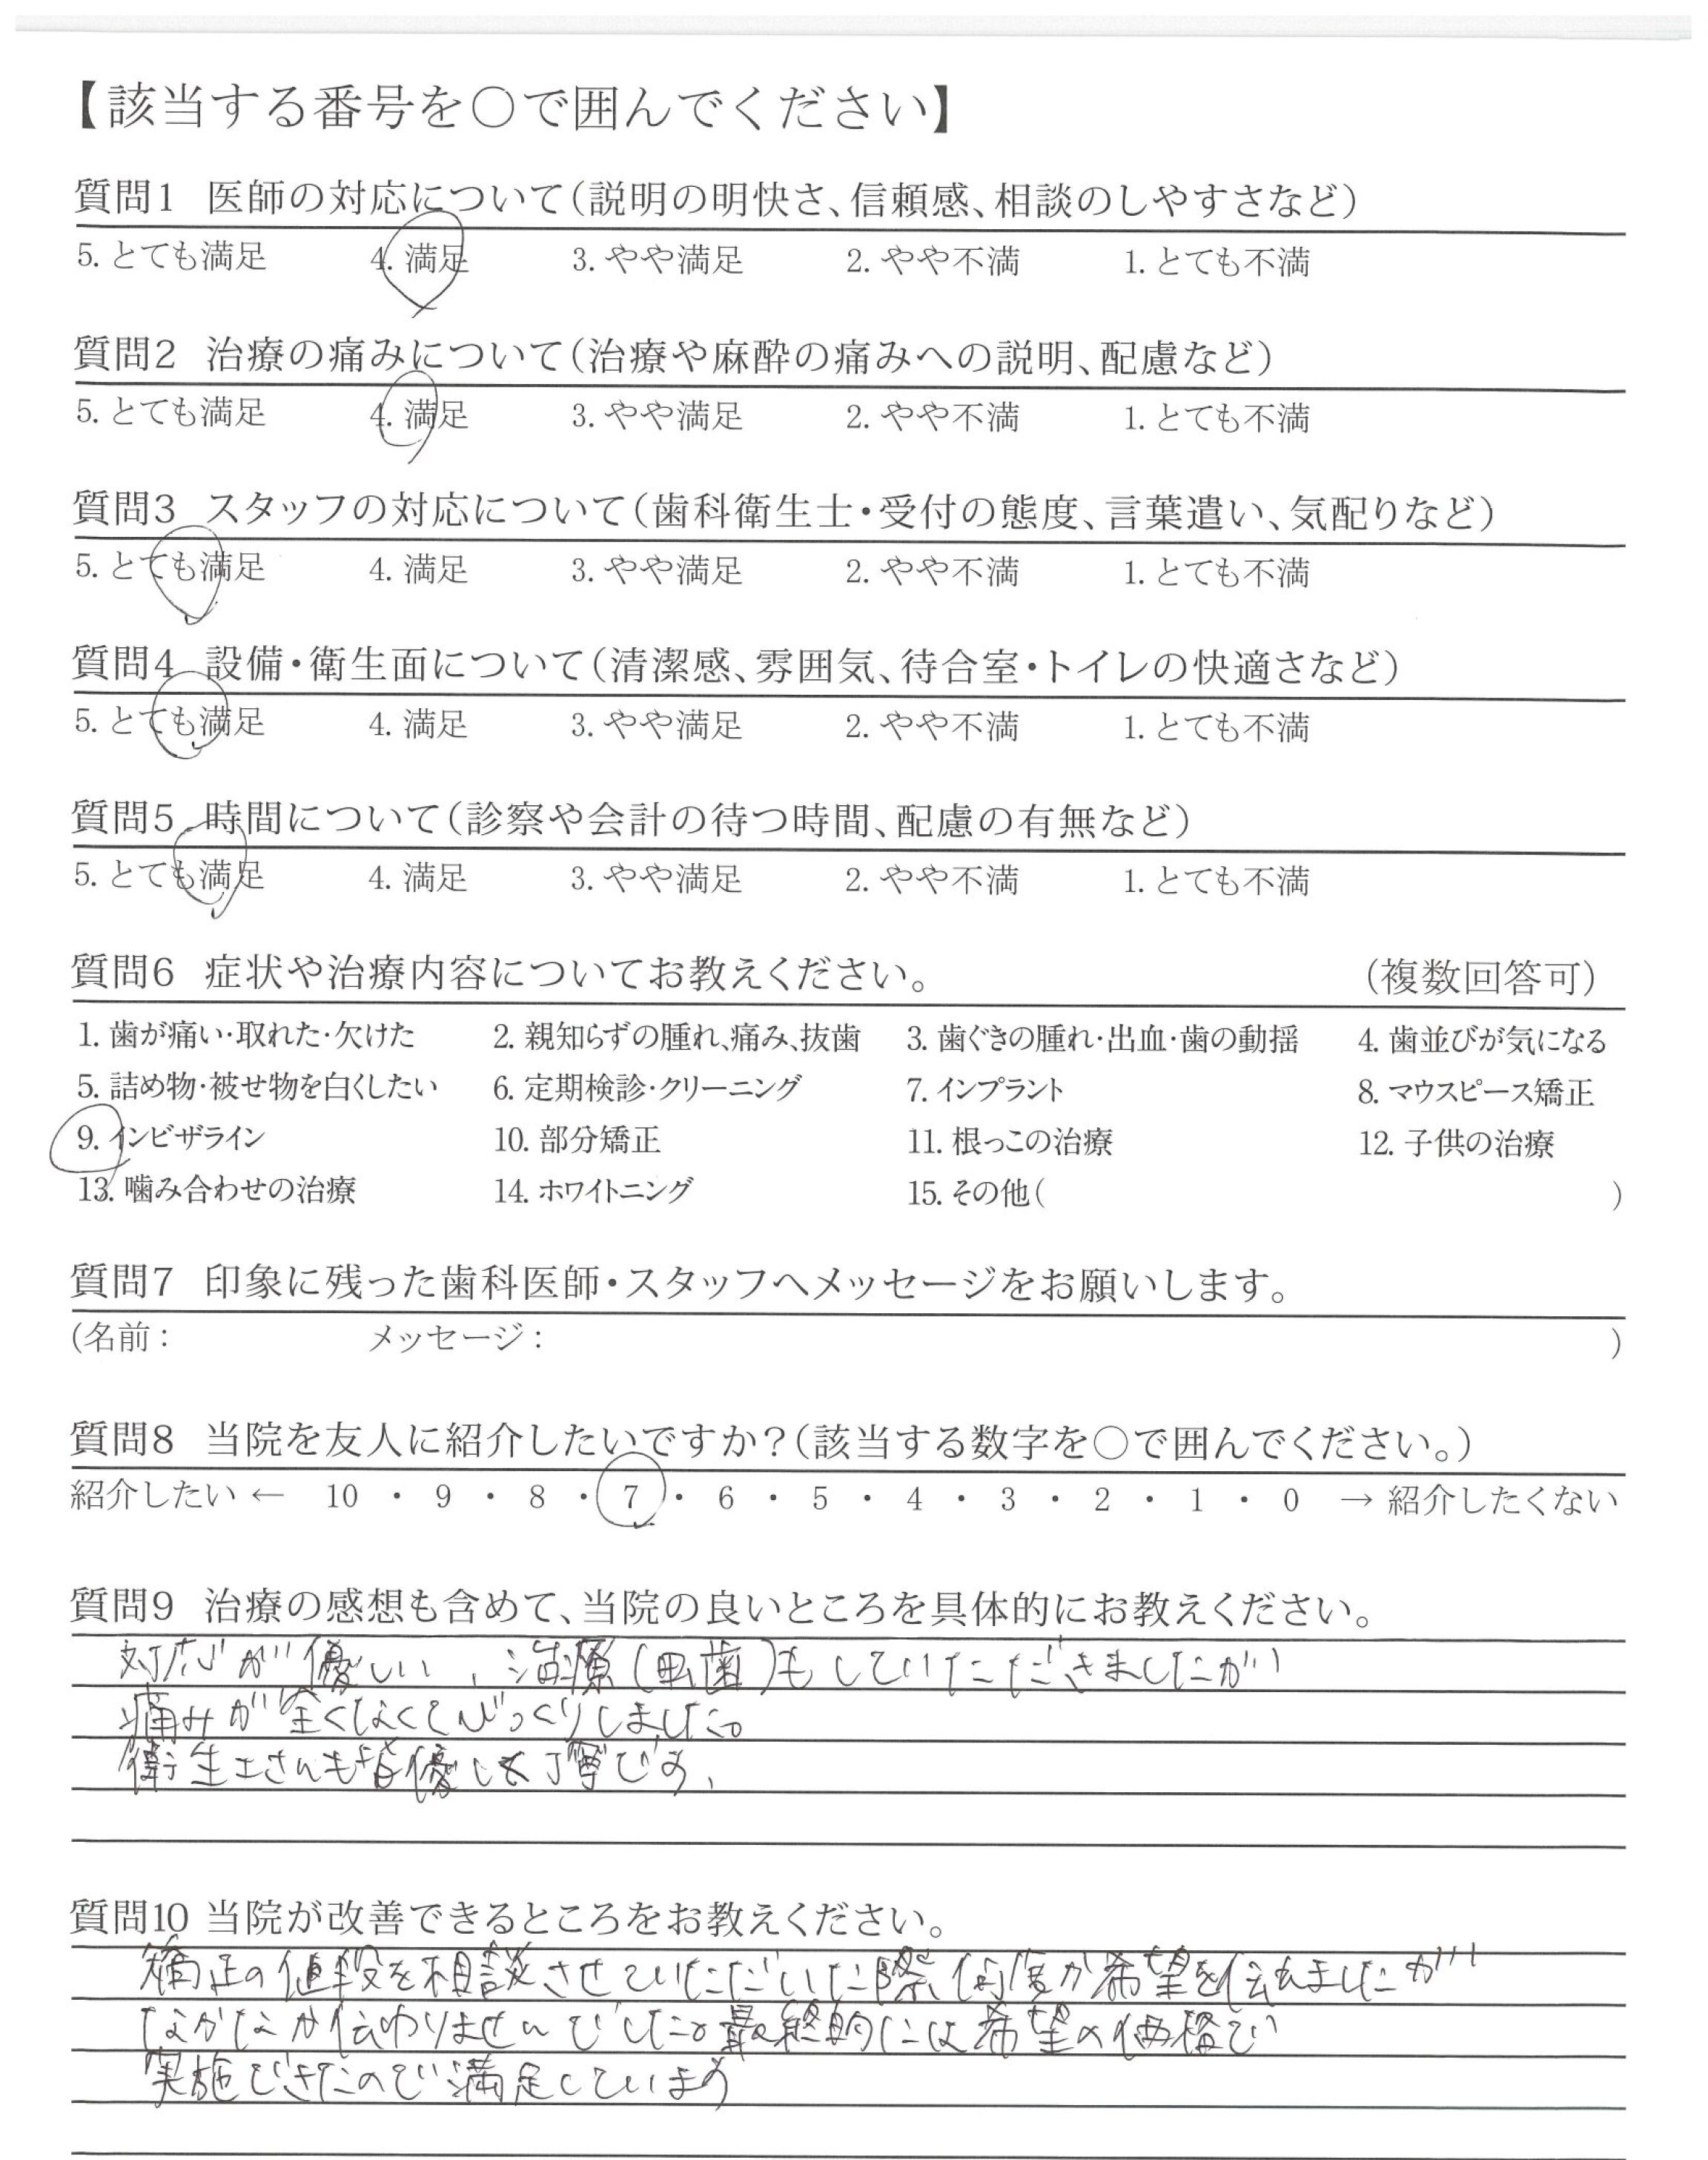 【該当する番号を○で囲んでください】
質問1 医師の対応について(説明の明快さ、信頼感、相談のしやすさなど)
5. とても満足 4. 満足 3. やや満足 2. やや不満 1. とても不満
質問2 治療の痛みについて(治療や麻酔の痛みへの説明、配慮など)
5. とても満足 4. 満足 3. やや満足 2. やや不満 1. とても不満
質問3 スタッフの対応について(歯科衛生士・受付の態度、言葉遣い、気配りなど)
5. とても満足 4. 満足 3. やや満足 2. やや不満 1. とても不満
質問4 設備・衛生面について(清潔感、雰囲気、待合室・トイレの快適さなど)
5. とても満足 4. 満足 3. やや満足 2. やや不満 1. とても不満
質問5 時間について(診察や会計の待つ時間、配慮の有無など)
5. とても満足 4. 満足 3. やや満足 2. やや不満 1. とても不満
質問6 症状や治療内容についてお教えください。 (複数回答可)
1. 歯が痛い・取れた・欠けた 2. 親知らずの腫れ、痛み、抜歯 3. 歯ぐきの腫れ・出血・歯の動揺 4. 歯並びが気になる
5. 詰め物・被せ物を白くしたい 6. 定期検診・クリーニング 7. インプラント 8. マウスピース矯正
9. インビザライン 10. 部分矯正 11. 根っこの治療 12. 子供の治療
13. 噛み合わせの治療 14. ホワイトニング 15. その他( )
質問7 印象に残った歯科医師・スタッフへメッセージをお願いします。
(名前: メッセージ: )
質問8 当院を友人に紹介したいですか?(該当する数字を○で囲んでください。)
紹介したい ← 10 ・ 9 ・ 8 ・ 7 ・ 6 ・ 5 ・ 4 ・ 3 ・ 2 ・ 1 ・ 0 → 紹介したくない
質問9 治療の感想も含めて、当院の良いところを具体的にお教えください。
対応が優しい、治療(虫歯)もしていただきましたが
痛みが全くなくてびっくりしました。
衛生士さんも皆優しく丁寧です、
質問10 当院が改善できるところをお教えください。
矯正の値段を相談させていただいた際、何度か希望を伝えましたが
なかなか伝わりませんでした。最終的には希望の価格で
実施できたので満足しています